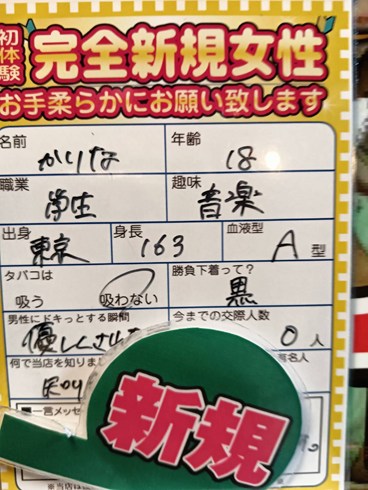 初体験
完全新規女性
お手柔らかにお願い致します
名前 かりな 年齢 18
職業 学生 趣味 音楽
出身 東京 身長 163 血液型 A 型
タバコは 勝負下着って?
吸う 吸わない 黒
男性にドキっとする瞬間 今までの交際人数
優しくされた 0 人
何で当店を知りまし
名人
一言メッセ
新規
※当店は